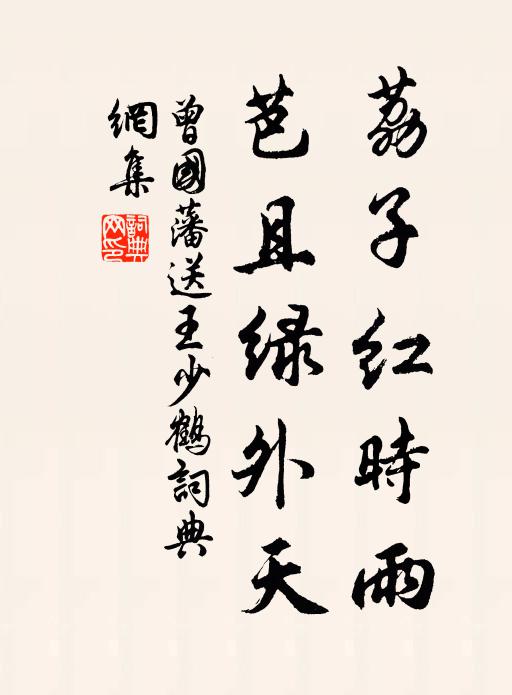 荔子紅時雨
芭且綠外天
曾國藩送王少鶴詞典
網集
詞典網印